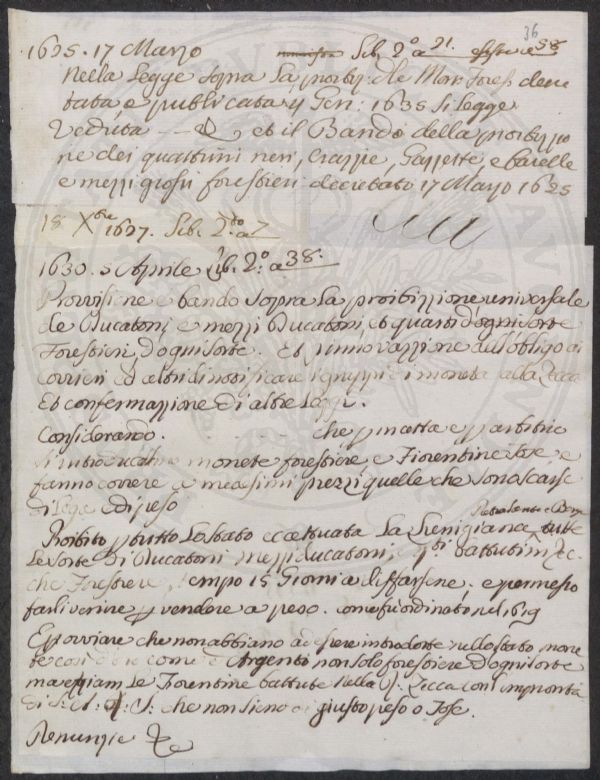 36
1625. 17 Marzo Lib. 2.o a 21.
Nella Legge sopra la proibiz: delle Mon: Forest: decre
tata, e publicata Gen: 1635 si legge
Veduta et il Bando della proibizzio
ne dei quattrini neri, Crazzie, Gazzette, e barelle
e mezzi grossi forestieri decretato 17 Marzo 1625
18 Xbre 1627. Lib. 2.do a 7
1630. 5 Aprile Lib. 2.o a 38.
Provvisione e bando sopra la proibizzione universale
de Ducatoni, e mezzi Ducatoni, et quarti d'ogni sorte
Forestieri d'ogni sorte. Et rinnovazzione dell'obligo ai
corrieri ed altri di notificare i gruppi di moneta alla Zecca
Et confermazzione di altre Leggi.
Considerando. che
monete forestiere e Fiorentine tose e
fanno correre a medesimi prezzi quelle che sono scarse
di lega e di peso
Pietrasanta e Barga
Proibito p tutto lo stato eccettuata la Lunigiana tutte
le sorte di Ducatoni mezzi ducatoni, battuti in Zec
che Forestiere, tempo 15 Giorni a disfarsene. e permesso
farli venire p vendere a peso. come fu ordinato nel 1619
Et ovviare che non abbiano ad essere introdotte nello stato mone
te così come d'Argento non solo forestiere d'ogni sorte
ma eziam le Fiorentine battute nella Zecca con l'impronta
di S. A. S. che non sieno di giusto peso o Tose.
Renunzie &c